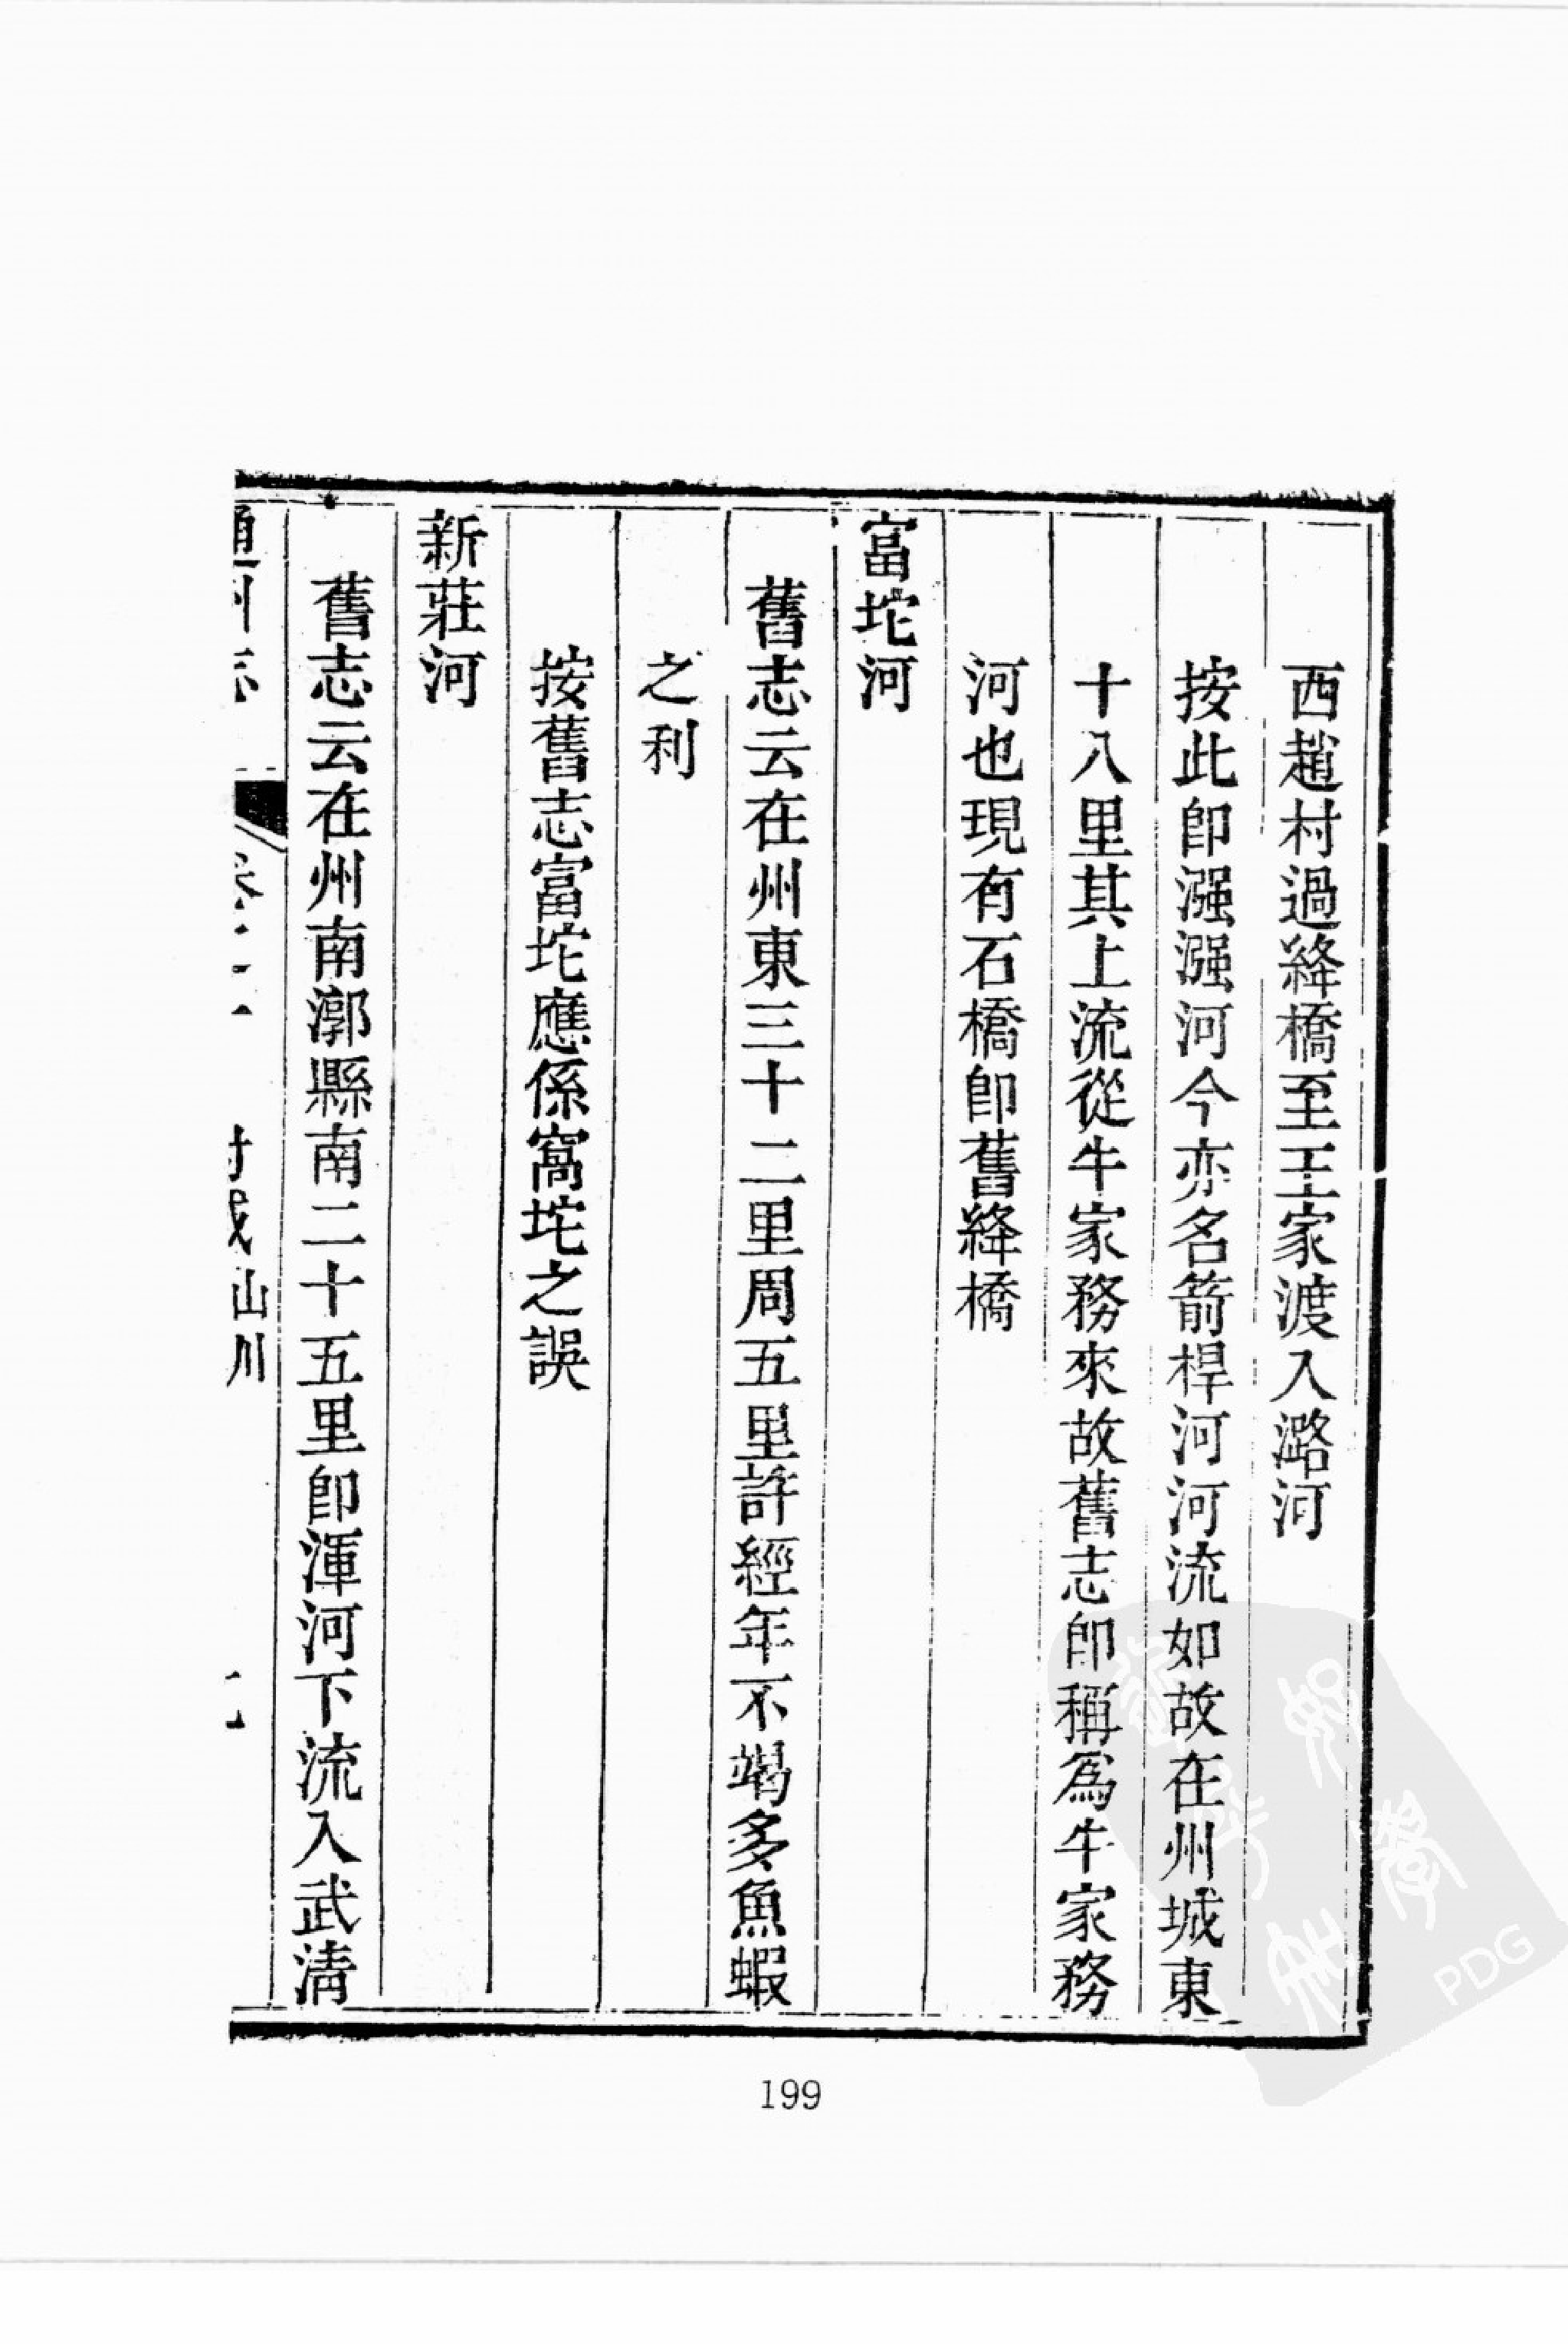 西趙村過絳橋至王家渡入潞河
按此卽漒漒河今亦名箭桿河河流如故在州城東
十八里其上流從牛家務來故舊志卽稱爲牛家務
河也現有石橋卽舊絳橋
富坨河
舊志云在州東三十二里周五里許經年不竭多魚蝦
之利
按舊志富坨應係窩坨之誤
新莊河
舊志云在州南漷縣南二十五里卽渾河下流入武淸
通州志
山川
199
PDG